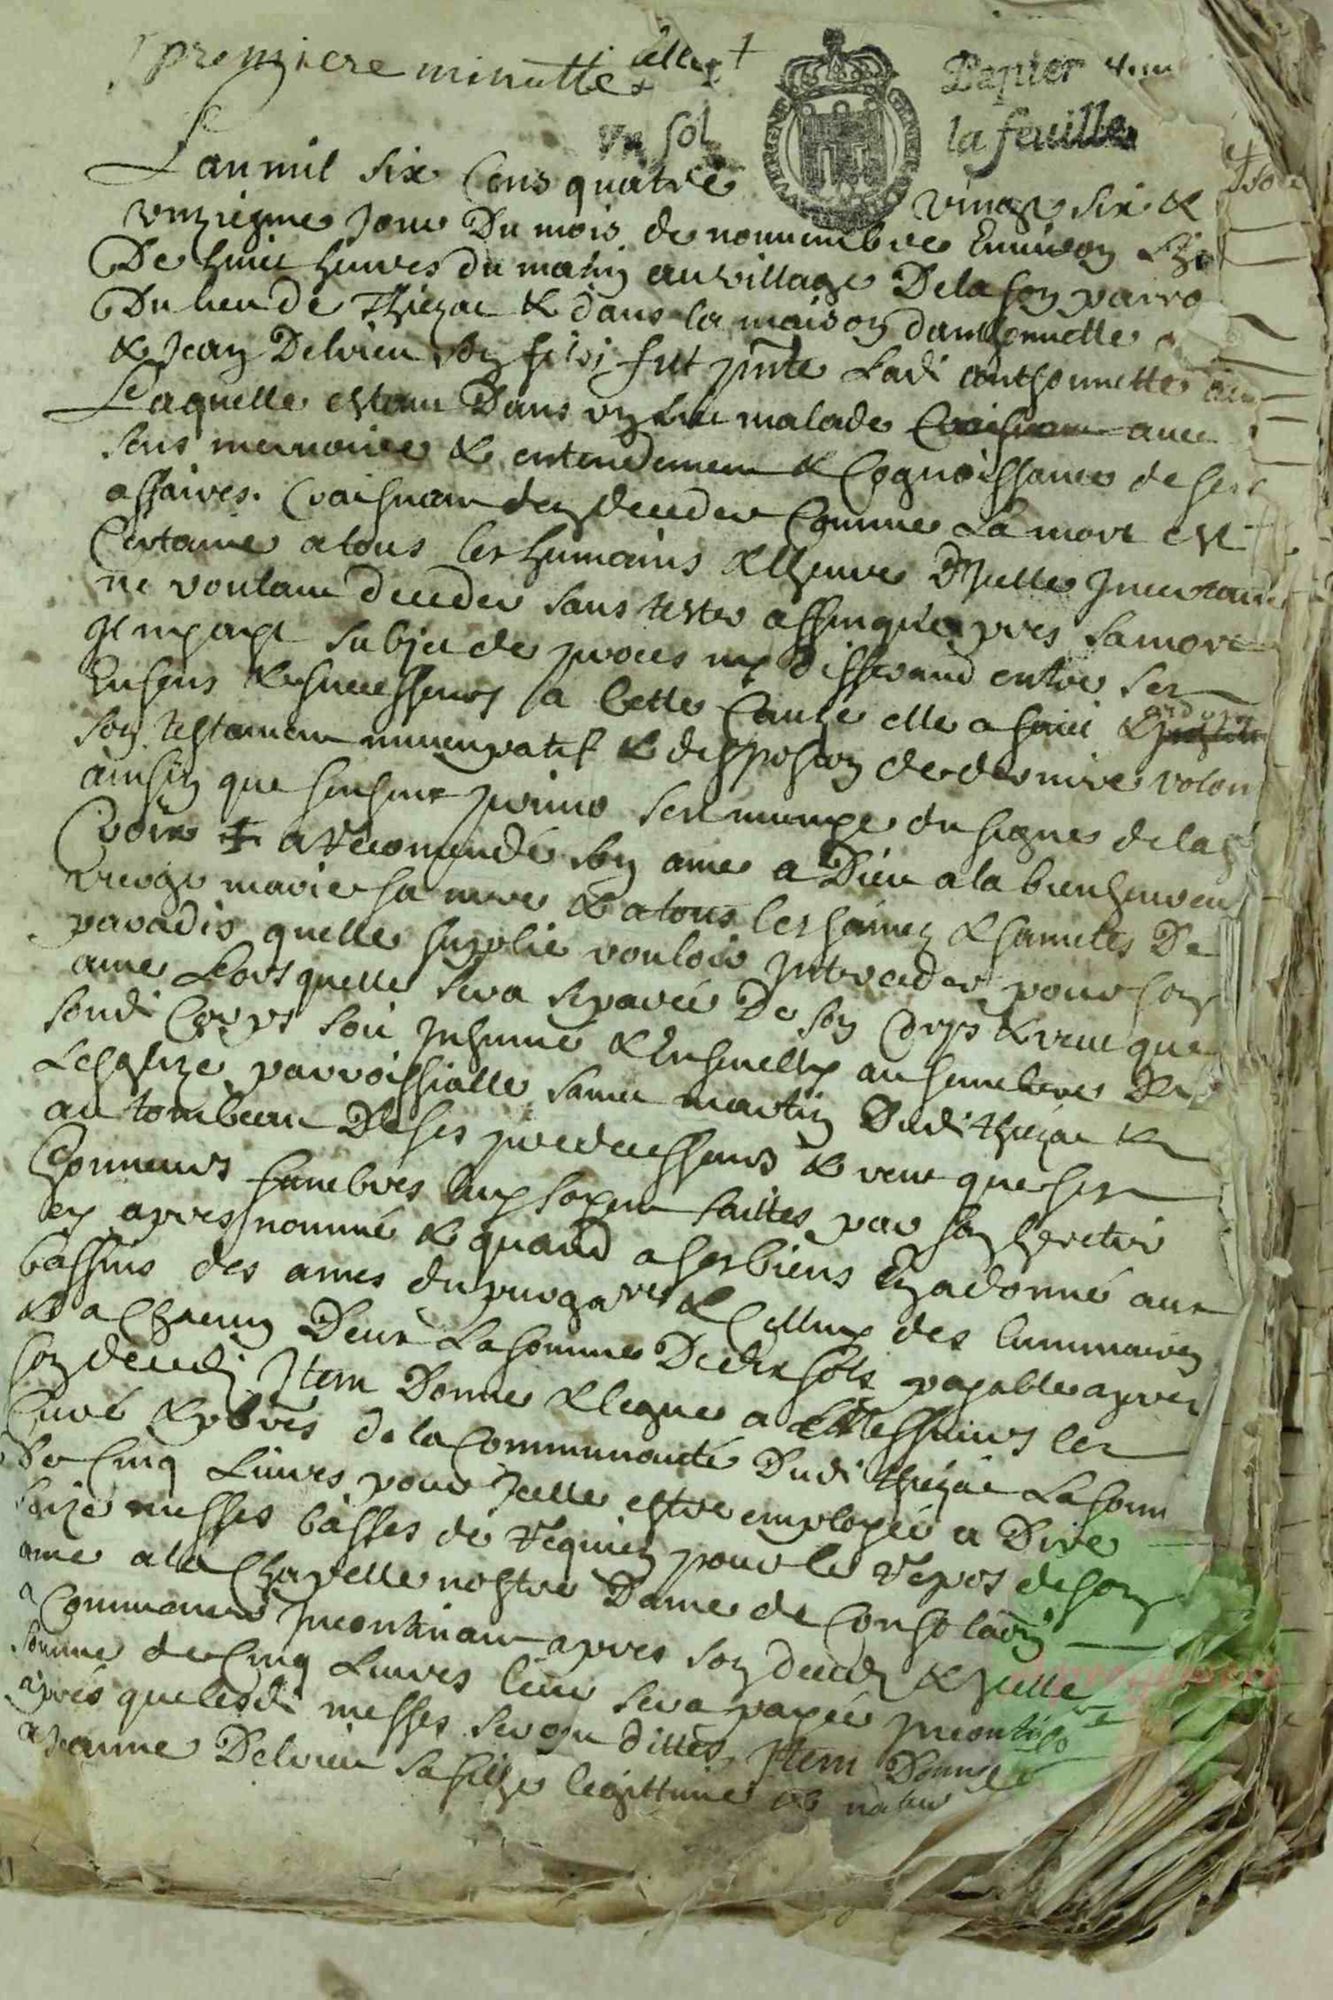 premziere minutte
Un sol
Papier
la feuille
Lan mil six cens quatre vingt six &
unziesme jour du mois de nouvembre environ
De huict heures du matin au village De la parro
Du lieu de Thiezac & dans la maison danthonnette
& Jean Delrieu son fils fut pnte Ladi anthonnette
Laquelle estant Dans un lict malade avec
sens memoire & entendement & Cognoissance de ses
affaires. Craisnant den deceder Comme La mort est
Certaine a tous les humains & lheure D'Icelle Incertaine
ne voulant deceder sans tester affin quapres sa mort
subjet de proces ny differand entre ses
Enfens & successeurs a Cette Cauze elle a faict & ordonné
son testament nuncupatif & dispostion de derniere volon
ainsin que sensuit primo sest munye du signe de la
Croix ✝ a recomandé son ame a Dieu a la bienheureu
vierge marie sa mere & a tous les saintz & sainctes De
paradis quelle suplie vouloir Interceder pour son
ame Lors quelle sera separée De son Corps & veut que
sondi Corps soit Inhumé & Ensevelly au simetiere De
Leseglize parroissialle sainct martin Dudi thiezac &
au tombeau De ses predecesseurs & veut que ses
honneurs funebres luy soyent faittes par son heretier
cy apres nommé & quand a ses biens En a donné aux
bassins des ames du purgare & Celluy des luminaires
& a Chacun Deux La somme De dix sols payable apres
son decedz Item Donne & legue a Messieurs les
Curé & pbres de la Communauté Dudi thiezac La somm
De Cinq Livres pour Icelle estre employée a Dire
seize messes basses de requiem pour le repos de son
ame a la Chapelle nostre Dame de Consolaon
a Commancer Incontinant apres son decedz & Icelle
somme de Cinq Livres leur sera payée Incontin
apres que lesdi messes seront dittes Item Donne
a Jeanne Delrieu sa fille legittime & natur